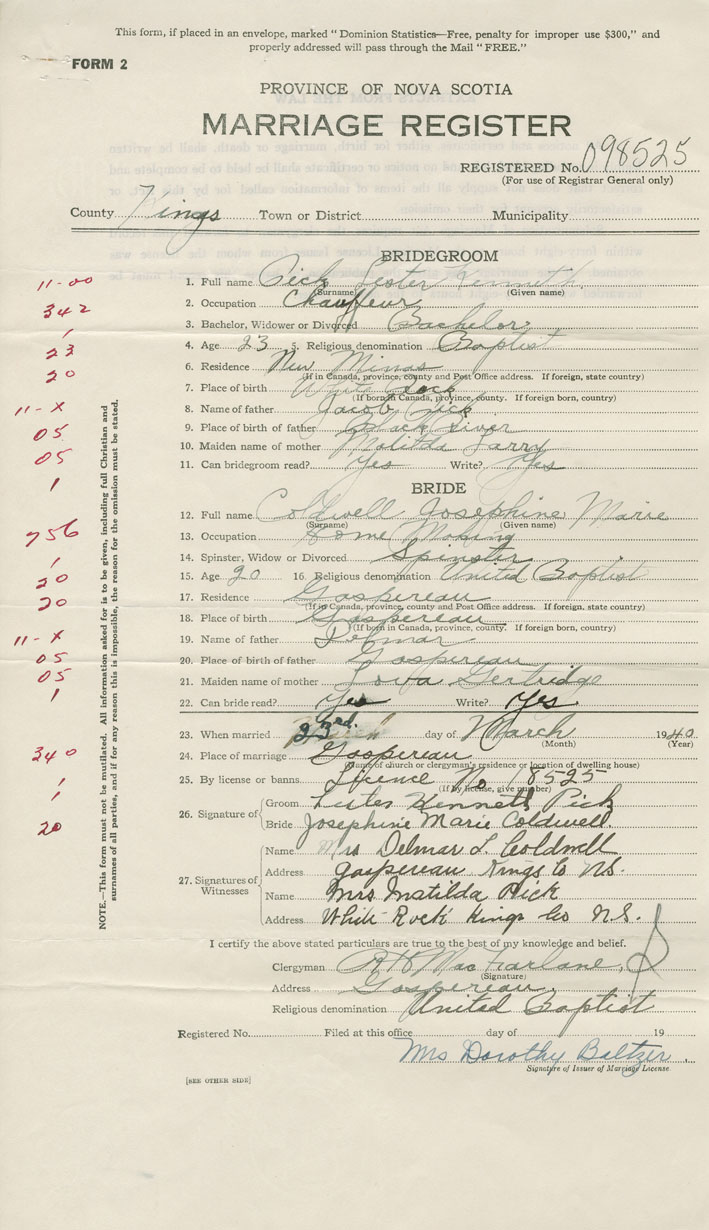 This form, if placed in an envelope, marked "Dominion Statistics—Free, penalty for improper use $300," and
properly addressed will pass through the Mail "FREE."
FORM 2
PROVINCE OF NOVA SCOTIA
MARRIAGE REGISTER
REGISTERED No. 098525
(For use of Registrar General only)
County Kings Town or District Municipality
BRIDEGROOM
11-00
1. Full name Pick Lester Kenneth
(Surname) (Given name)
342
2. Occupation Chauffeur
1
3. Bachelor, Widower or Divorced Bachelor
23
4. Age 23 5. Religious denomination Baptist
20
6. Residence New Minas
(If in Canada, province, county and Post Office address. If foreign, state country)
7. Place of birth White Rock
(If born in Canada, province, county. If foreign born, country)
11-X
8. Name of father Jacob Pick
05
9. Place of birth of father Black River
05
10. Maiden name of mother Matilda
1
11. Can bridegroom read? Yes Write? Yes
BRIDE
12. Full name Coldwell Josephine Marie
(Surname) (Given name)
756
13. Occupation Home Making
1
14. Spinster, Widow or Divorced Spinster
20
15. Age 20 16. Religious denomination United Baptist
20
17. Residence Gaspereau
(If in Canada, province, county and Post Office address. If foreign, state country)
18. Place of birth Gaspereau
(If born in Canada, province, county. If foreign born, country)
11-X
19. Name of father Delmar
05
20. Place of birth of father Gaspereau
05
21. Maiden name of mother Gertridge
1
22. Can bride read? Yes Write? Yes
23. When married 23rd. day of March 1940
(Month) (Year)
340
24. Place of marriage Gaspereau
(Name of church or clergyman's residence or location of dwelling house)
1
25. By license or banns. Licence No 18525
(If by license, give number)
1
26. Signature of
Groom Lester Kenneth Pick
20
Bride Josephine Marie Coldwell
27. Signatures of Witnesses
Name Mrs Delmar L. Coldwell
Address Gaspereau Kings Co NS.
Name Mrs Matilda Pick
Address White Rock Kings Co N.S.
NOTE.—This form must not be mutilated. All information asked for is to be given, including full Christian and
surnames of all parties, and if for any reason this is impossible, the reason for the omission must be stated.
I certify the above stated particulars are true to the best of my knowledge and belief.
Clergyman R H MacFarlane
(Signature)
Address Gaspereau
Religious denomination United Baptist
Registered No. Filed at this office day of 19
Mrs Dorothy Baltzer
Signature of Issuer of Marriage License
[SEE OTHER SIDE]